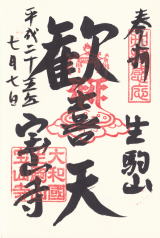 奉拝
生駒山
歓喜天
宝山寺
平成二十五年
七月七日
大和國
生駒山
宝山寺